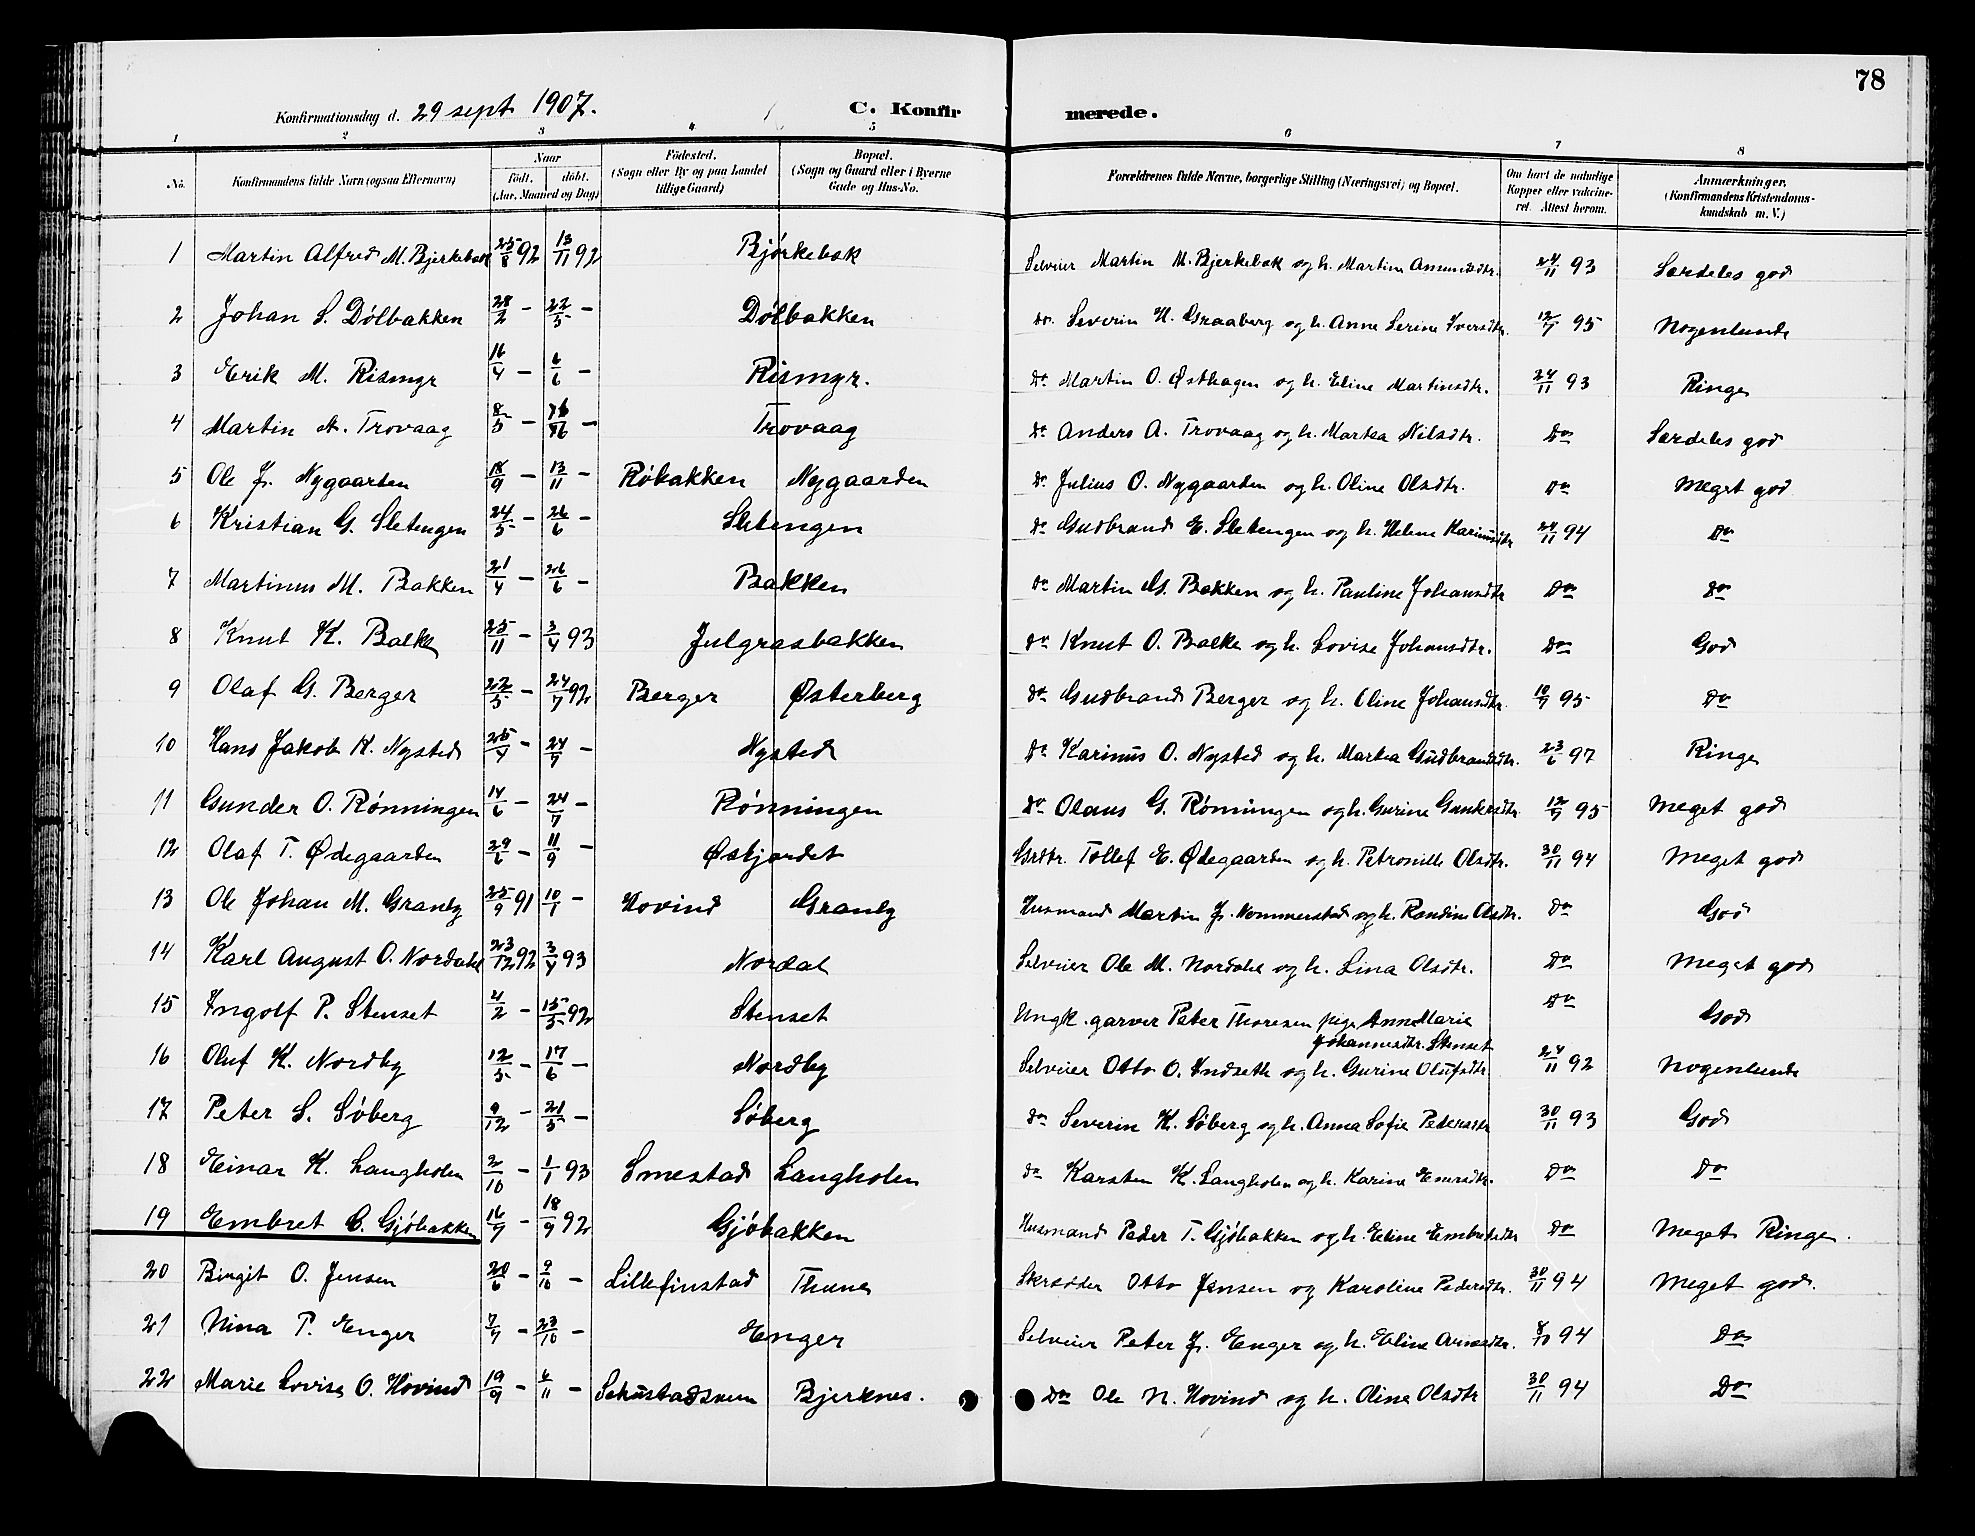 78
Konfirmationsdag d. 29 sept 1907. C. Konfirmerede.
1 2 3 4 5 6 7 8
No. Konfirmandens fulde Navn (ogsaa Efternavn) Naar født. døbt. (Aar, Maaned og Dag) Fødested. (Sogn eller By og paa Landet tillige Gaard) Bopæl. (Sogn og Gaard eller i Byerne Gade og Hus-No. Forældrenes fulde Navne, borgerlige Stilling (Næringsvei) og Bopæl. Om havt de naturlige Kopper eller vaccineret. Attest herom. Anmærkninger. (Konfirmandens Kristendomskundskab m. V.)
1 Martin Alfred M. Bjerkebæk 25/8 92 13/11 92 Bjørkebæk Selveier Martin M. Bjerkebæk og h. Martine Amundsdtr. 24/11 93 Særdeles god
2 Johan S. Dølbakken 28/2 - 22/5 - Dølbakken do. Severin H. Graaberg og h. Anne Serine Iversdtr. 12/7 95 Nogenlunde
3 Erik M. Rismyr 16/4 - 6/6 - Rismyr. do Martin O. Østhagen og h. Eline Martinsdtr. 24/11 93 Ringe
4 Martin A. Trovaag 8/5 - Trovaag do Anders A. Trovaag og h. Martea Nilsdtr. Do Særdeles god
5 Ole J. Nygaarden 18/9 - 13/11 - Røbakken Nygaarden do Julius O. Nygaarden og h. Oline Olsdtr. Do Meget god
6 Kristian G. Sletengen 24/5 - 26/6 - Sletengen do Gudbrand E. Sletengen og h. Helene Karinusdtr 24/11 94 Do
7 Martinus M. Bakken 21/4 - 26/6 - Bakken do Martin G. Bakken og h. Pauline Johansdtr Do Do
8 Knut K. Balke 25/11 - 3/4 93 Julgrasbakken do Knut O. Balke og h. Lovise Johansdtr. Do God
9 Olaf G. Berger 22/5 - 24/7 92 Berger Østerberg do Gudbrand Berger og h. Oline Johansdtr. 10/7 95 Do
10 Hans Jakob K. Nysted 25/4 - 24/7 - Nysted do Karinus O. Nysted og h. Martea Gudbrandsdtr. 23/6 97 Ringe
11 Gunder O. Rønningen 14/6 - 24/7 - Rønningen do Olaus G. Rønningen og h. Gurine Gundersdtr. 12/7 95 Meget god
12 Olaf T. Ødegaarden 29/6 - 11/9 - Øsbjordet Grdbr. Tollef E. Ødegaarden og h. Petronille Olsdtr. 30/11 94 Meget god
13 Ole Johan M. Granby 25/9 91 10/1 - Hovind Granby Husmand Martin J. Nommerstad og h. Randine Olsdtr. Do God
14 Karl August O. Nordahl 23/12 92 3/4 93 Nordal Selveier Ole M. Nordahl og h. Lina Olsdtr. Do Meget god
15 Ingolf P. Stenset 4/2 - 15/5 92 Stenset Ungk. garver Peter Thoresen pige Anne Marie Do God
Johannesdtr. Stenset
16 Oluf K. Nordby 12/5 - 17/6 - Nordby Selveier Otto O. Indseth og h. Gurine Olufsdtr 24/11 92 Nogenlunde
17 Peter S. Søberg 9/12 - 21/5 - Søberg do Severin K. Søberg og h. Anna Sofie Pedersdtr 30/11 93 God
18 Einar K. Langholen 2/10 - 1/1 93 Smestad Langholen do Karsten K. Langholen og h. Karine Enersdtr. Do Do
19 Embret P. Gjøbakken 16/7 - 18/9 92 Gjøbakken Husmand Peder T. Gjøbakken og h. Eline Embretsdtr Do Meget Ringe.
20 Birgit O. Jensen 20/6 - 9/10 - Lillefinstad Thune Skrædder Otto Jensen og Karoline Pedersdtr. 30/11 94 Meget god.
21 Nina P. Enger 7/7 - 23/10 - Enger Selveier Peter J. Enger og h. Eline Arnesdtr. 8/10 94 Do
22 Marie Lovise O. Hovind 19/9 - 6/11 - Bjerknes. Do Ole N. Hovind og h. Oline Olsdtr 30/11 94 Do